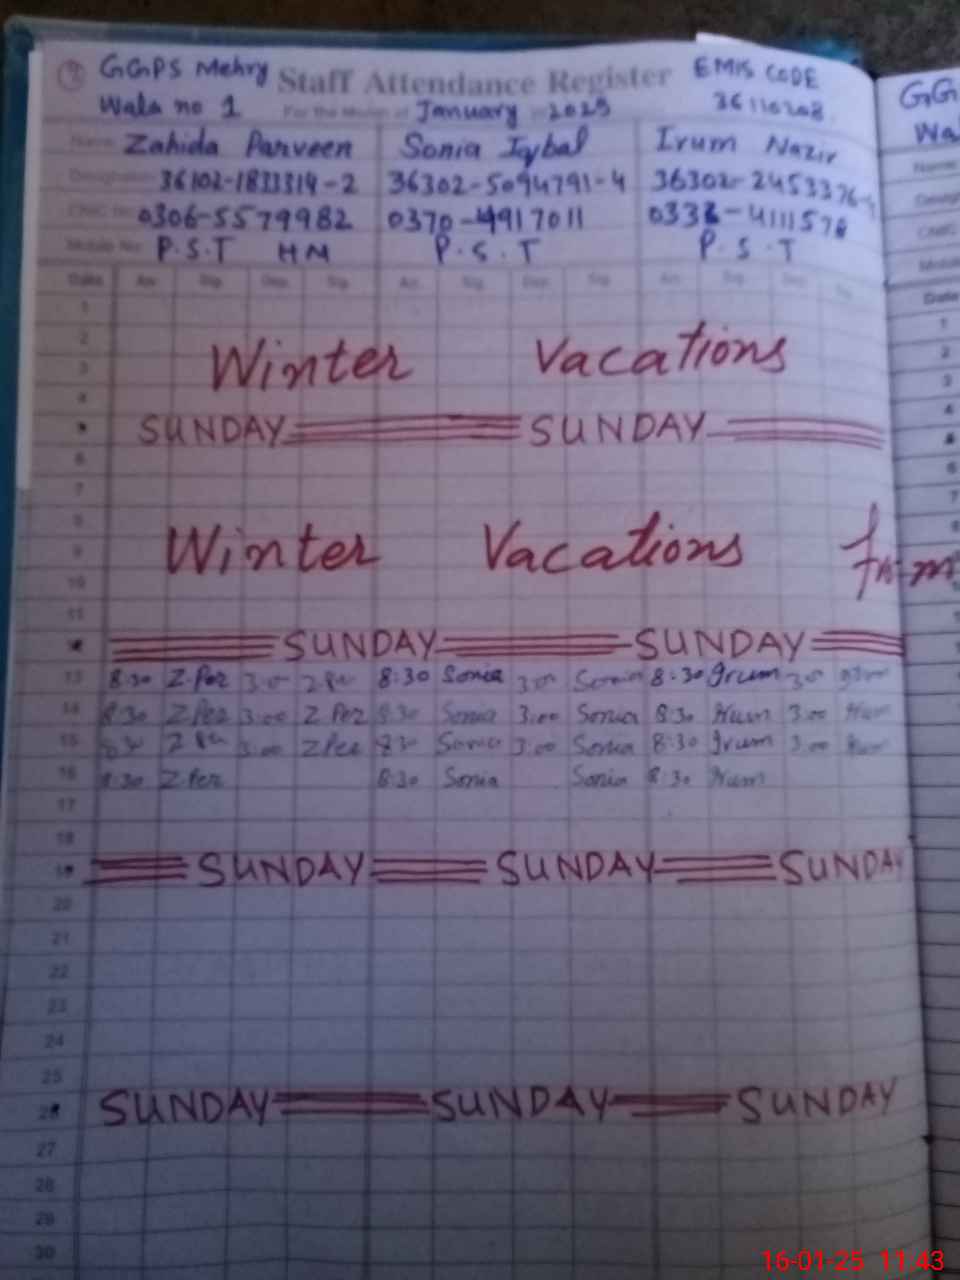 GGPS Mehry Staff Attendance Register EMIS CODE
Wala no 1 For the Month of January 2025 36110208
Name Zahida Parveen Sonia Iqbal Irum Nazir
36102-1833314-2 36302-5094791-4 36302-2453376-
0306-5579982 0370-4917011 033 -4111578
Mobile No P.S.T HM P.S.T P.S.T
Date Arr. Sig. Dep. Sig. Arr. Sig. Dep. Sig. Arr. Sig. Dep. Sig.
1
2
Winter Vacations
3
4
SUNDAY SUNDAY
6
7
8
Winter Vacations
9
10
11
SUNDAY SUNDAY
13 8:30 Z.Per 3:00 Z Per 8:30 Sonia 3:00 Sonia 8:30 Irum 3:00 Irum
14 8:30 Z Per 3:00 Z Per 8:30 Sonia 3:00 Sonia 8:30 Irum 3:00 Irum
15 8:30 Z Per 3:00 Z Per 8:30 Sonia 3:00 Sonia 8:30 Irum 3:00 Irum
16 8:30 Z Per 8:30 Sonia Sonia 8:30 Irum
17
18
19 SUNDAY SUNDAY SUNDAY
20
21
22
23
24
25
26 SUNDAY SUNDAY SUNDAY
27
28
29
30
GG
Wa
Name
Date
1
2
3
4
6
7
8
16-01-25 11:43